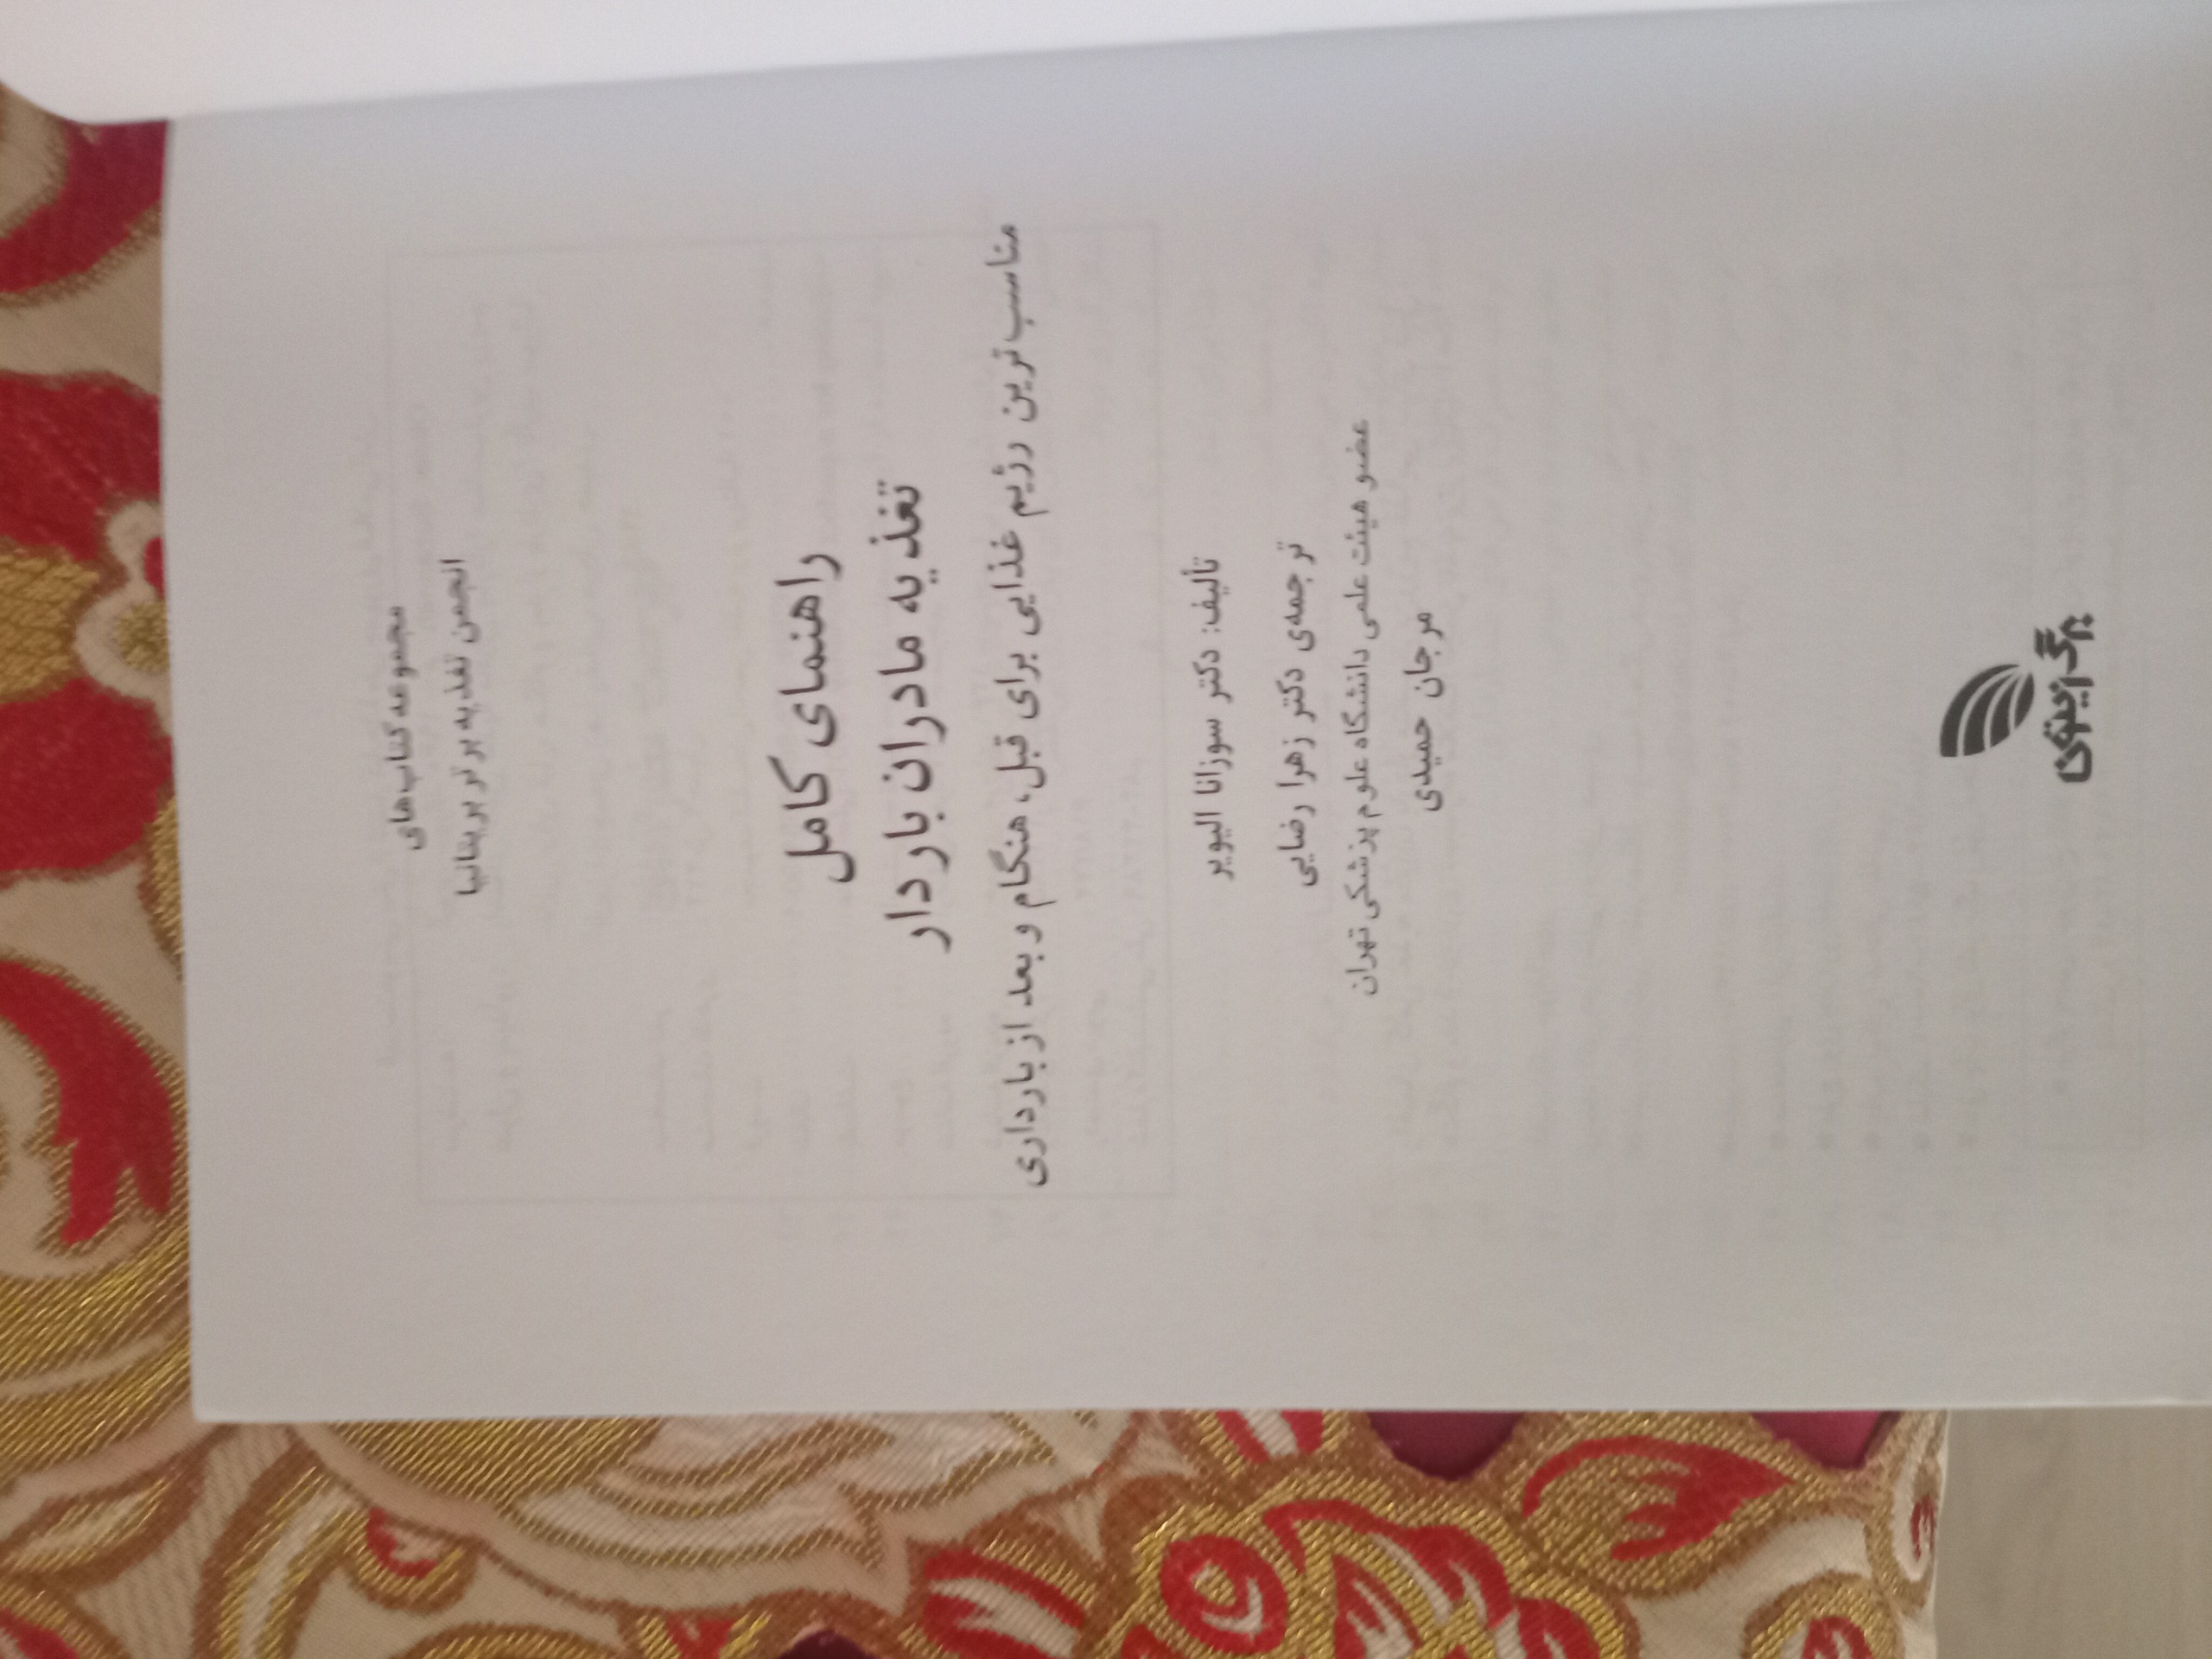 مجموعه کتاب‌های
انجمن تغذیه برتر بریتانیا
راهنمای کامل
تغذیه مادران باردار
مناسب‌ترین رژیم غذایی برای قبل، هنگام و بعد از بارداری
تألیف: دکتر سوزانا الیویر
ترجمه‌ی دکتر زهرا رضایی
عضو هیئت علمی دانشگاه علوم پزشکی تهران
مرجان حمیدی
برگ زیتون